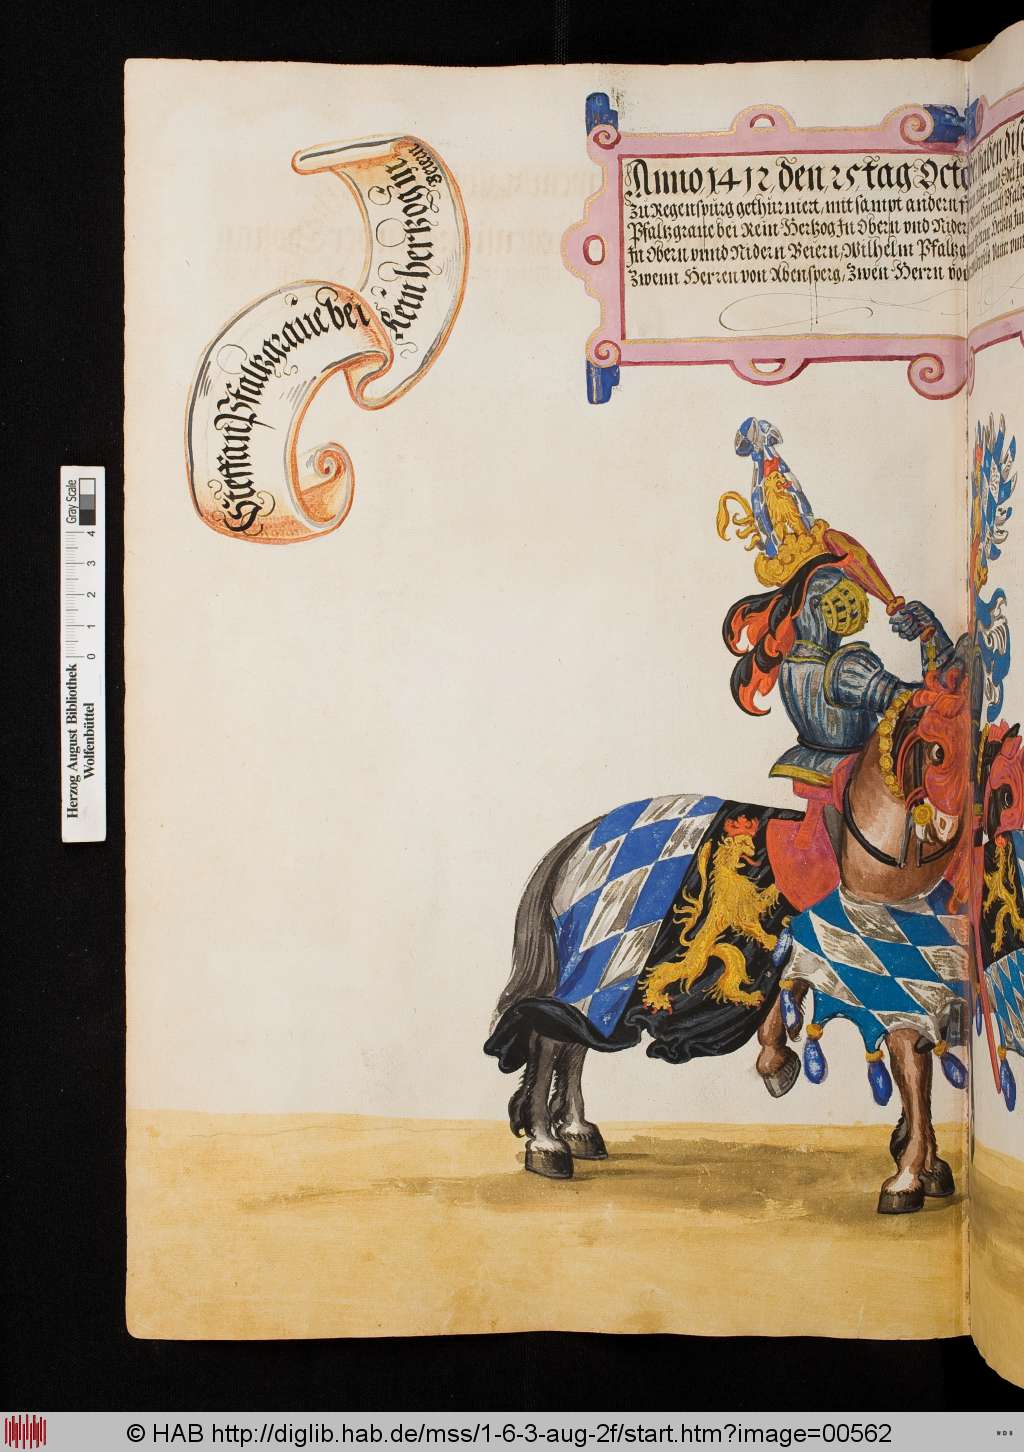 Steffan Pfaltzgraue bei
Rein hertzog in
Beiern
Anno 1412, den 25 tag Octo
Zu Regenspurg gethurniert, mit sampt andern f
Pfaltzgraue bei Rein Hertzog In Obern vnd Nidern
In Obern vnnd Nidern Beiern, Wilhelm Pfaltzg
Zwenn Herren von Abensperg, Zwen Herrn vo
Gray Scale
0 1 2 3 4
Herzog August Bibliothek
Wolfenbüttel
© HAB http://diglib.hab.de/mss/1-6-3-aug-2f/start.htm?image=00562